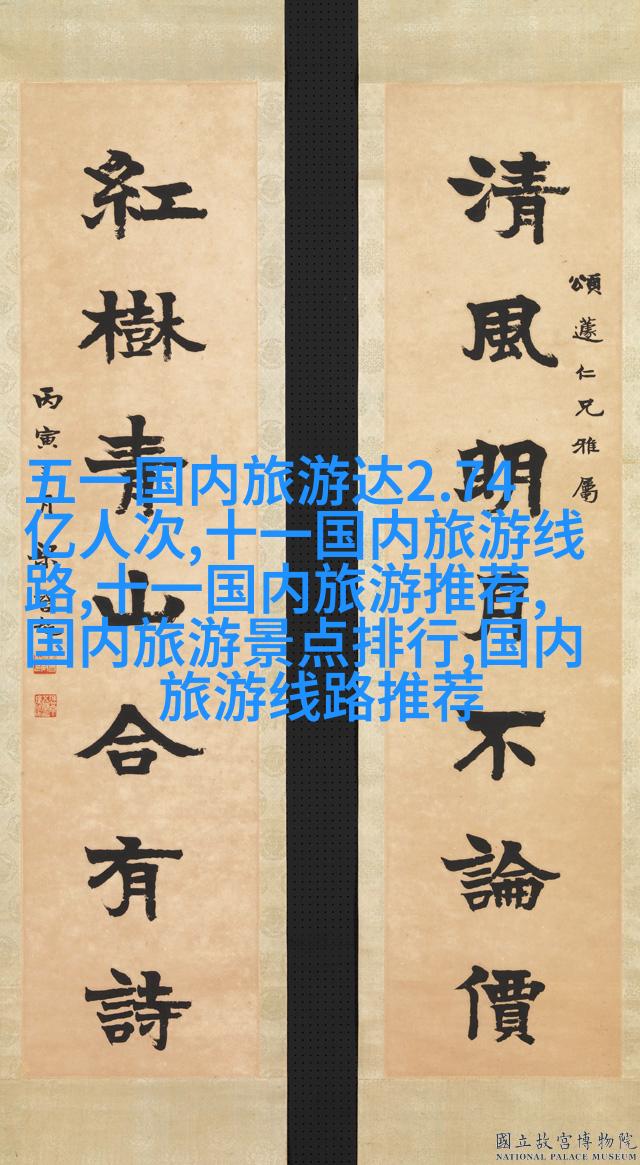 清風明月不論價
頌蘧仁兄雅屬
紅樹青山合有詩
丙寅
五一国内旅游达2.74
亿人次,十一国内旅游线
路,十一国内旅游推荐,
国内旅游景点排行,国内
旅游线路推荐
國立故宮博物院
NATIONAL PALACE MUSEUM